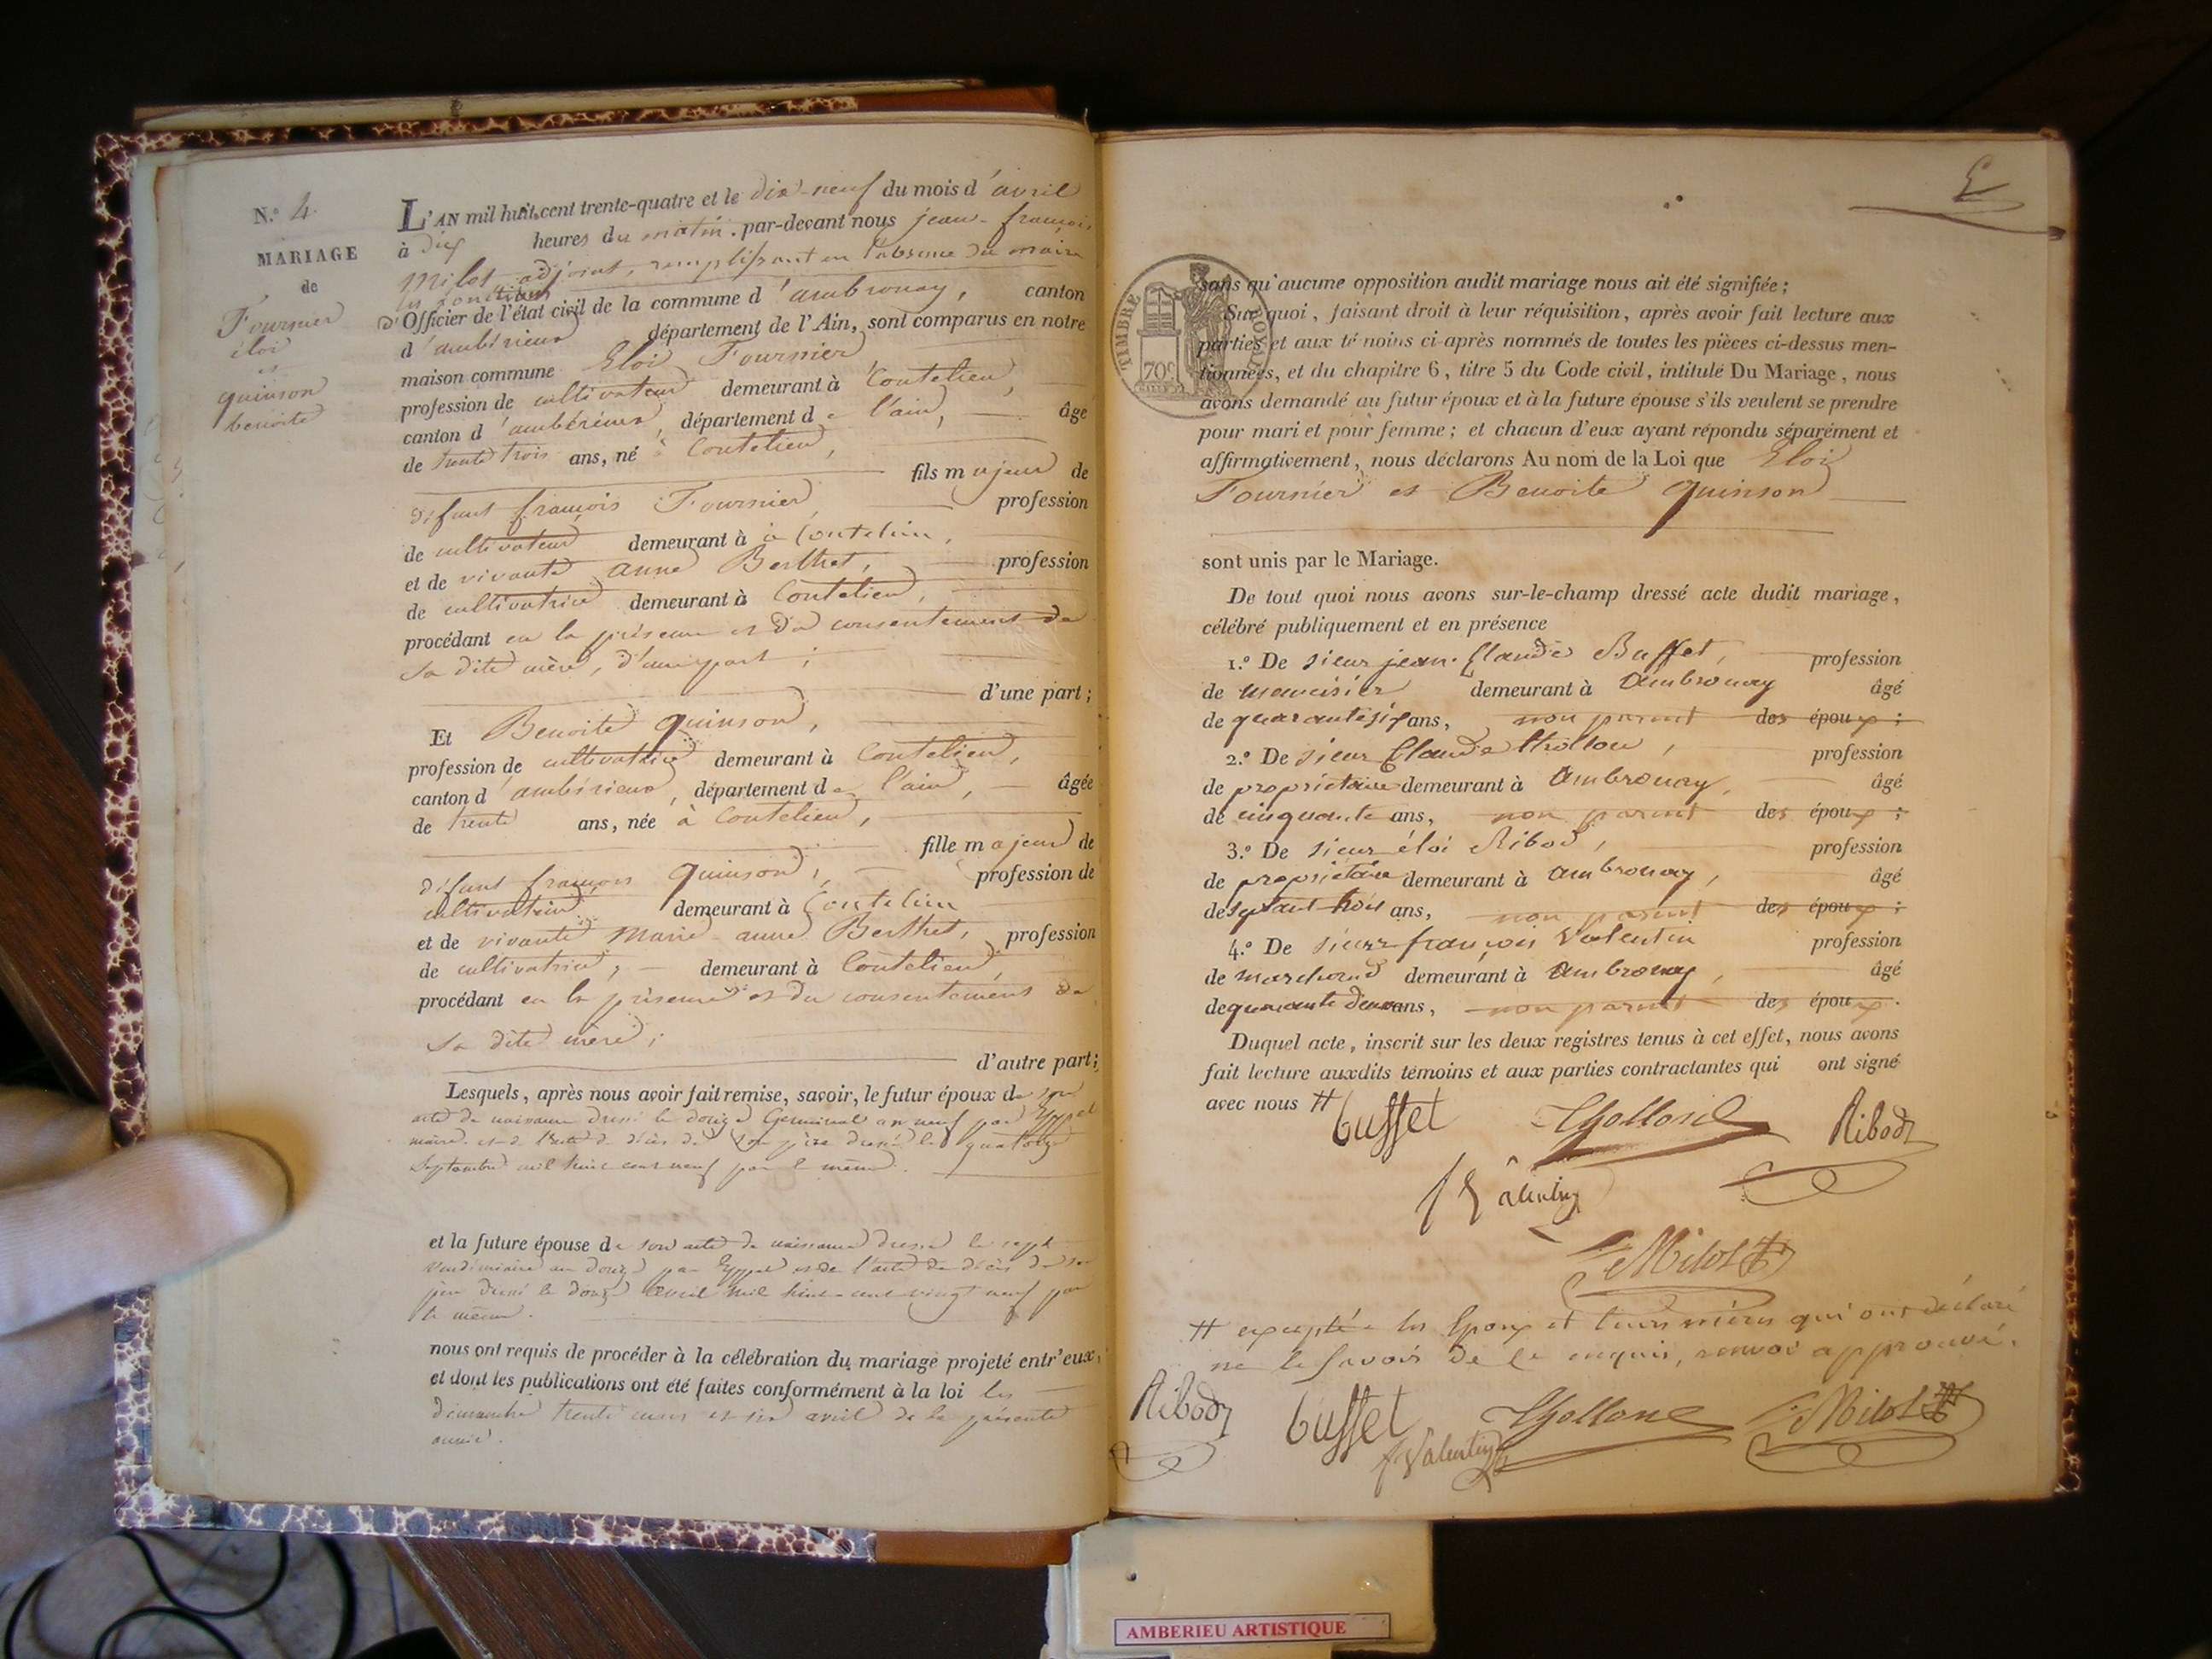 N.° 4.
MARIAGE
de
Fournier
éloi
et
quinson
benoite
L'AN mil huit cent trente-quatre et le dix-neuf du mois d'avril
à dix heures du matin. par-devant nous jean-françois
Milot adjoint, remplissant en l'absence du maire
les fonctions
d'Officier de l'état civil de la commune d'ambronay, canton
d'ambérieux département de l'Ain, sont comparus en notre
maison commune Eloi Fournier
profession de cultivateur demeurant à Coutelieu,
canton d'ambérieux, département de l'ain, âgé
de trente trois ans, né à Coutelieu,
fils majeur de
défunt françois Fournier, profession
de cultivateur demeurant à à Coutelieu,
et de vivante anne Berthet, profession
de cultivatrice demeurant à Coutelieu,
procédant en la présence et du consentement de
sa dite mère, d'une part ;
d'une part ;
Et Benoite quinson,
profession de cultivatrice demeurant à Coutelieu,
canton d'ambérieux, département de l'ain, âgée
de trente ans, née à Coutelieu,
fille majeure de
défunt françois quinson, profession de
cultivateur demeurant à Coutelieu
et de vivante Marie-anne Berthet, profession
de cultivatrice, demeurant à Coutelieu,
procédant en la présence et du consentement de
sa dite mère ;
d'autre part ;
Lesquels, après nous avoir fait remise, savoir, le futur époux de son
acte de naissance dressé le douze Germinal an neuf par Eyppel
maire et de l'acte de décès de son père dressé le quatorze
Septembre mil huit cent neuf par le même.
et la future épouse de son acte de naissance dressé le sept
Vendémiaire an douze par Eyppel et de l'acte de décès de son
père dressé le douze avril mil huit-cent vingt neuf par
le même.
nous ont requis de procéder à la célébration du mariage projeté entr'eux,
et dont les publications ont été faites conformément à la loi les
dimanche trente mars et six avril de la présente
année.
TIMBRE ROYAL
70c
sans qu'aucune opposition audit mariage nous ait été signifiée ;
Sur quoi, faisant droit à leur réquisition, après avoir fait lecture aux
parties et aux témoins ci-après nommés de toutes les pièces ci-dessus men-
tionnées, et du chapitre 6, titre 5 du Code civil, intitulé Du Mariage, nous
avons demandé au futur époux et à la future épouse s'ils veulent se prendre
pour mari et pour femme ; et chacun d'eux ayant répondu séparément et
affirmativement, nous déclarons Au nom de la Loi que Eloi
Fournier et Benoite quinson
sont unis par le Mariage.
De tout quoi nous avons sur-le-champ dressé acte dudit mariage,
célébré publiquement et en présence
1.° De sieur jean-Claude Buffet, profession
de menuisier demeurant à Ambronay âgé
de quarante six ans, non parent des époux ;
2.° De sieur Claude thollon, profession
de propriétaire demeurant à Ambronay, âgé
de cinquante ans, non parent des époux ;
3.° De sieur éloi Ribod, profession
de propriétaire demeurant à ambronay, âgé
de septante trois ans, non parent des époux ;
4.° De sieur françois Valentin profession
de marchand demeurant à Ambronay, âgé
de quarante deux ans, non parent des époux.
Duquel acte, inscrit sur les deux registres tenus à cet effet, nous avons
fait lecture auxdits témoins et aux parties contractantes qui ont signé
avec nous #
buffet Thollon Ribod
f Valentin
Milot
# excepté les Epoux et leurs mères qui ont déclaré
ne le savoir de ce enquis, renvoi approuvé.
Ribod buffet Thollon Milot
f Valentin
AMBERIEU ARTISTIQUE